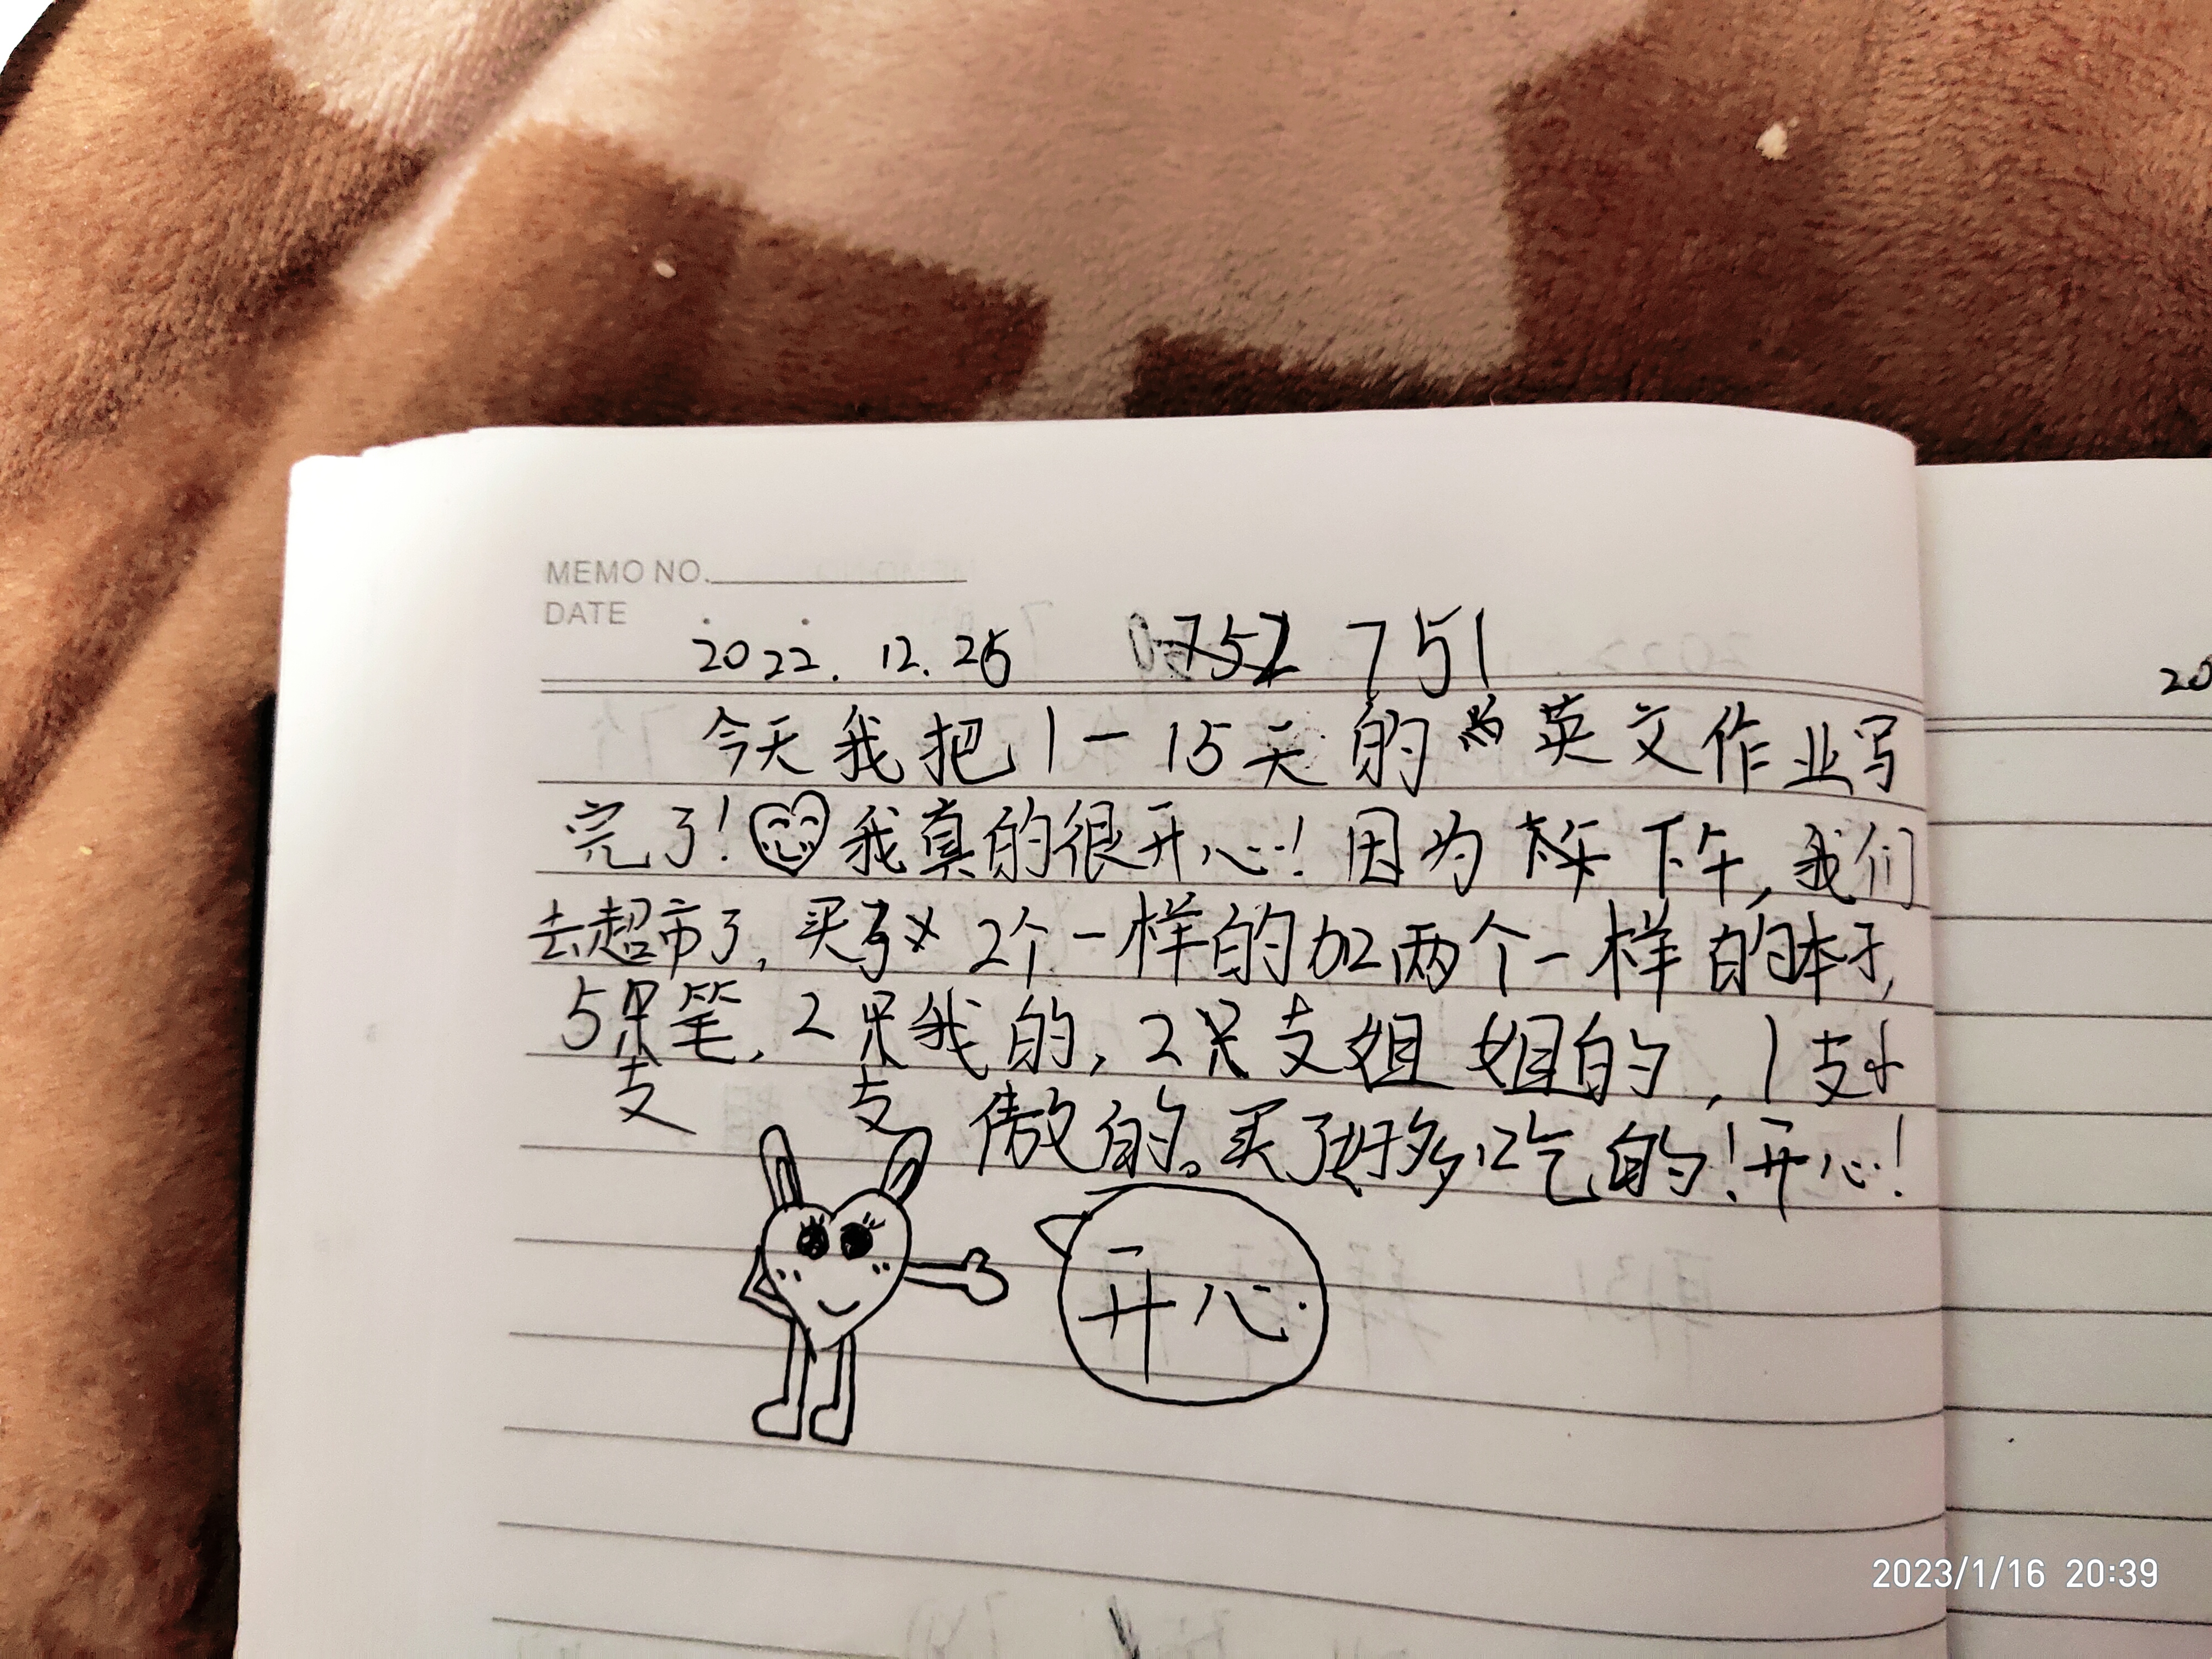 MEMO NO.
DATE
2022.12.26 751
20
今天我把1-15天的英文作业写
完了!我真的很开心!因为下午,我们
去超市了,买了2个一样的加两个一样的本子,
5支笔,2支我的,2支姐姐的,1支小
傲的。买了好多吃的!开心!
开心.
2023/1/16 20:39